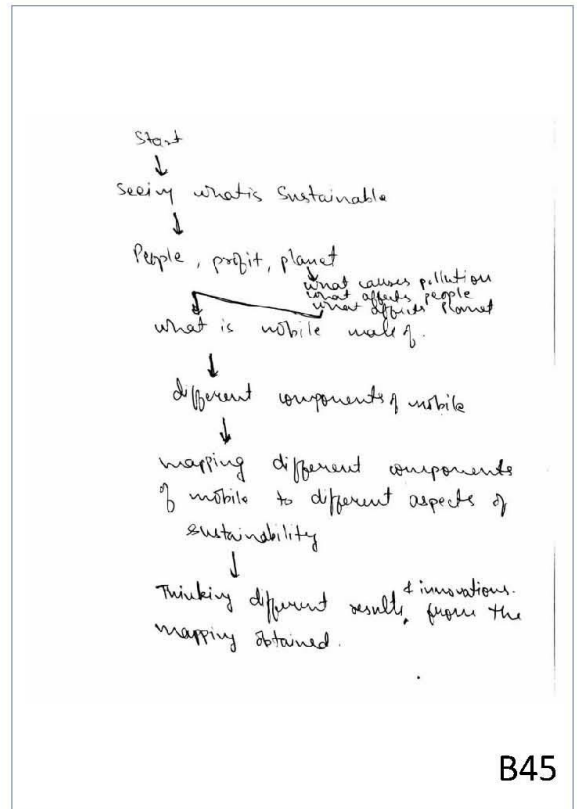 Start
Seeing what is Sustainable
People, profit, planet
what causes pollution
what affects people
what affects planet
what is mobile made of.
different components of mobile
mapping different components
of mobile to different aspects of
sustainability
& innovations.
Thinking different results, from the
mapping obtained.
B45